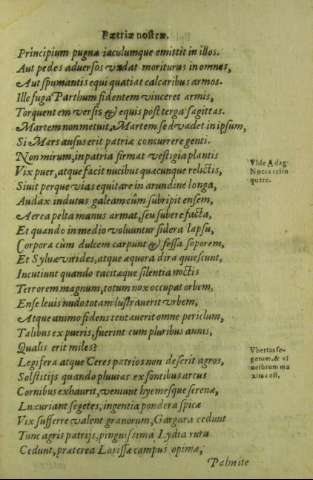 Patriæ nostræ.
Principium pugnæ iaculumque emittit in illos.
Aut pedes aduersos vadat moriturus in omnes,
Aut spumantis equi quatiat calcaribus armos.
Ille fuga Parthum fidentem vinceret armis,
Torquentem versis & equis post terga sagittas.
Martem non metuit, Martem sed vadet in ipsum,
Si Mars ausus erit patriæ concurrere genti.
Non mirum, in patria firmat vestigia plantis
Vix puer, atque facit nucibus quacunque relictis,
Siuit perque vias equitare in arundine longa,
Audax indutus galeam cum subripit ensem,
Aerea pelta manus armat, seu subere facta,
Et quando in medio voluuntur sidera lapsu,
Corpora cùm dulcem carpunt & fossa soporem,
Et Sylvæ virides, atque æquora dira quiescunt,
Incutiunt quando tacitæque silentia noctis
Terrorem magnum, totum nox occupat orbem,
Ense leuis nudo totam lustrauerit vrbem,
Atque animo fidens tentauerit omne periclum,
Talibus ex pueris, fuerint cum pluribus annis,
Qualis erit miles?
Legifera atque Ceres patrios non deserit agros,
Solstitijs quando pluuias ex fontibus arcus
Cornibus exhaurit, veniunt hyemesque serenæ,
Luxuriant segetes, ingentia pondera spicæ
Vix sufferre valent granorum, Gargara cedunt
Tunc agris patrijs, pinguissima Lydia rura
Cedunt, præterea Larissæ campus opimæ,
Palmite
Vide Adag.
Nuces relin
quere.
Vbertas se-
getum, & vi
nearum ma
xima est,